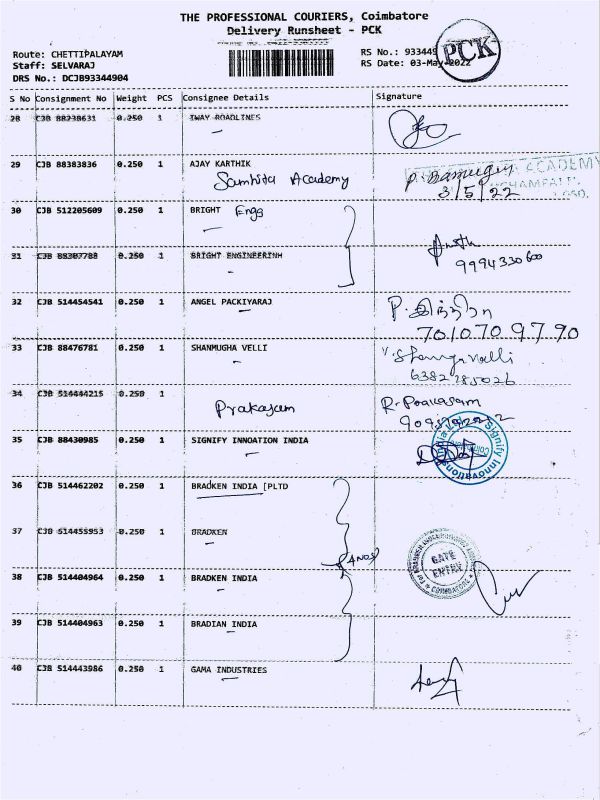 THE PROFESSIONAL COURIERS, Coimbatore
Delivery Runsheet - PCK
PCK
Route: CHETTIPALAYAM
RS No.: 93344
Staff: SELVARAJ
RS Date: 03-May-2022
DRS No.: DCJB93344904
S No Consignment No Weight PCS Consignee Details Signature
28 CJB 88238631 0.250 1 IWAY ROADLINES
29 CJB 88383836 0.250 1 AJAY KARTHIK
Samhita Academy
ACADEMY
3/5/22
30 CJB 512205609 0.250 1 BRIGHT Engg
31 CJB 88307788 0.250 1 BRIGHT ENGINEERINH
9994330600
32 CJB 514454541 0.250 1 ANGEL PACKIYARAJ
7010709790
33 CJB 88476781 0.250 1 SHANMUGHA VELLI
6382785026
34 CJB 514444215 0.250 1
Prakasam
35 CJB 88430985 0.250 1 SIGNIFY INNOATION INDIA
Signify Innovations
36 CJB 514462202 0.250 1 BRADKEN INDIA [PLTD
37 CJB 514455953 0.250 1 BRADKEN
4 Nos
GATE
ENTRY
COIMBATORE
38 CJB 514404964 0.250 1 BRADKEN INDIA
39 CJB 514404963 0.250 1 BRADIAN INDIA
40 CJB 514443986 0.250 1 GAMA INDUSTRIES